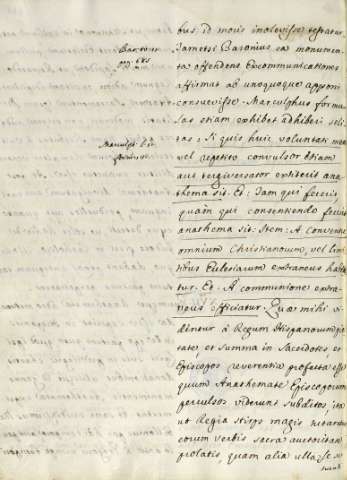 bus, id moris inolevisse testatur.
Tametsi Baronius ea monumen-
ta offendens Excommunicationes
affirmat ab unoquoque apponi
consuevisse. Marculphus formu-
las etiam exhibet adhiberi soli-
tas: Si quis huic voluntati meæ
vel repetitor convulsor etiam
aut tergiversator extiterit ana-
thema sit. Et: Tam qui fecerit
quàm qui consentiendo fuerit
anathema sit. Item: A conventu
omnium Christianorum, vel limi-
tibus Ecclesiarum extraneus habea-
tur. Et: A communione extra-
neus efficiatur. Quæ mihi vi-
dentur à Regum Hispanorum pie-
tate, et summa in Sacerdotes, et
Episcopos reverentia profecta esse
quum Anathemate Episcoporum
perculsos viderint subditos, ita
ut Regia stirps magis
eorum verbis sacra auctoritate
prolatis, quam alia ulla re se
Baron. ann.
Marculph. l.